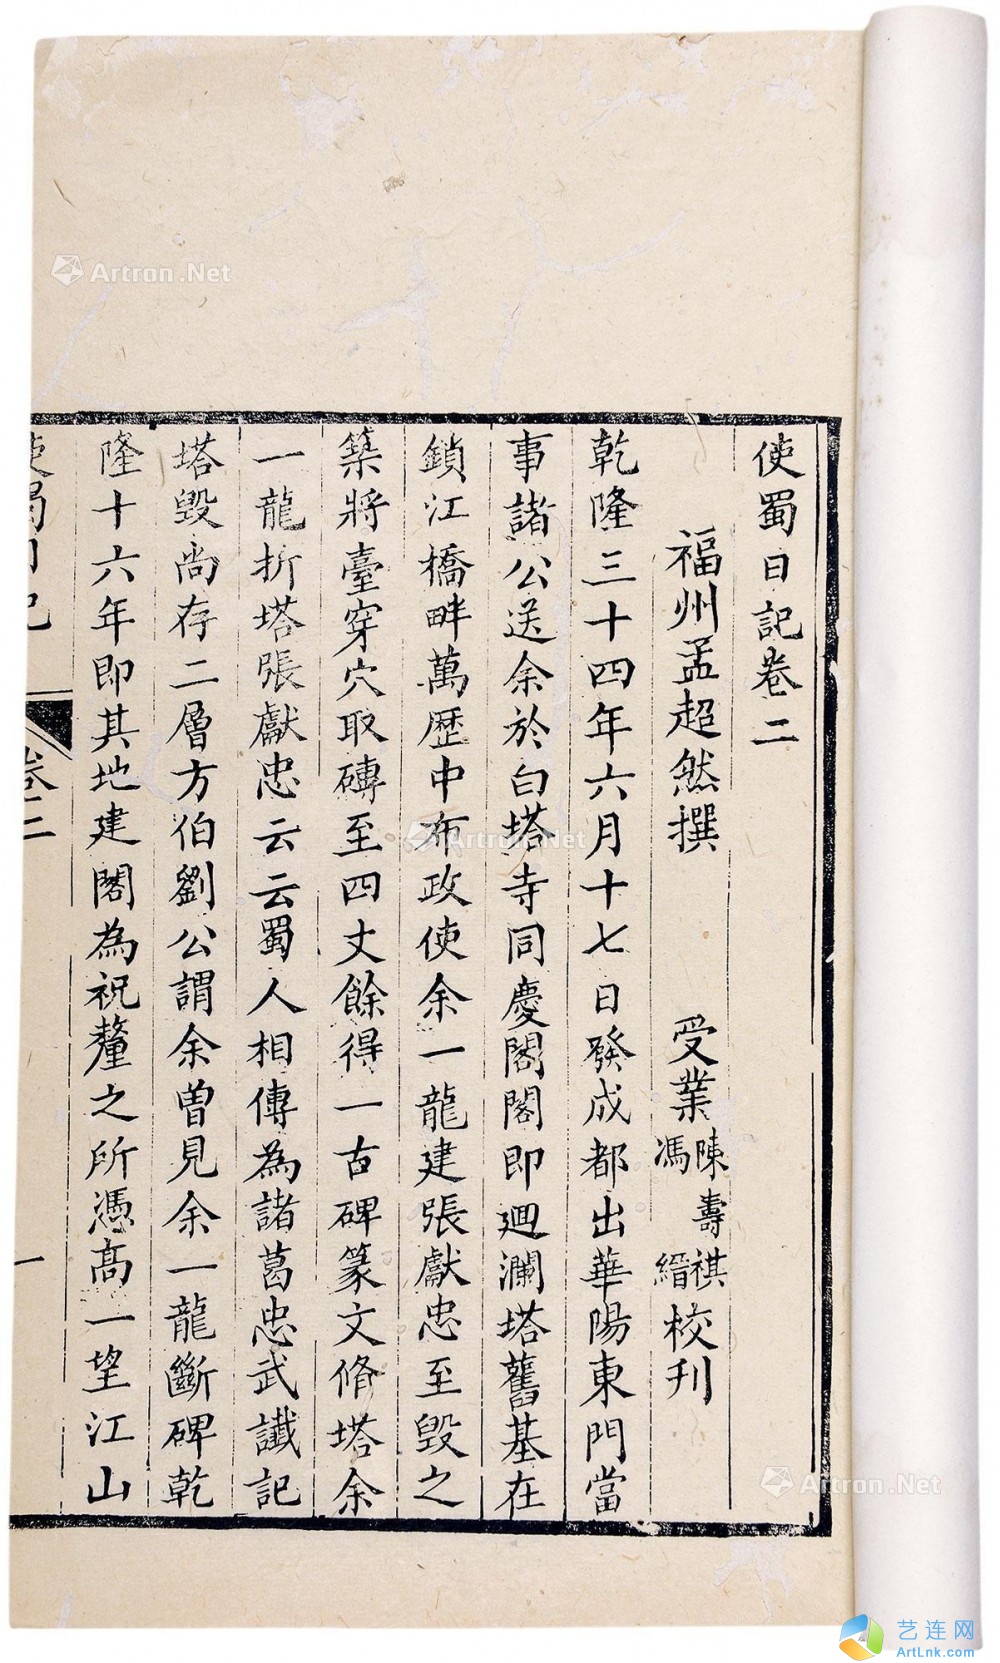 使蜀日記卷二
福州孟超然撰 受業陳壽祺馮縉校刋
乾隆三十四年六月十七日發成都出華陽東門當
事諸公送余於白塔寺同慶閣閣即迴瀾塔舊基在
鎖江橋畔萬歷中布政使余一龍建張獻忠至毀之
築將臺穿穴取磚至四丈餘得一古碑篆文脩塔余
一龍折塔張獻忠云云蜀人相傳為諸葛忠武讖記
塔毀尚存二層方伯劉公謂余曽見余一龍斷碑乾
隆十六年即其地建閣為祝釐之所憑高一望江山
使蜀日記 卷二 一
Artron.Net
Artron.Net
Artron.Net
艺连网
ArtLnk.com